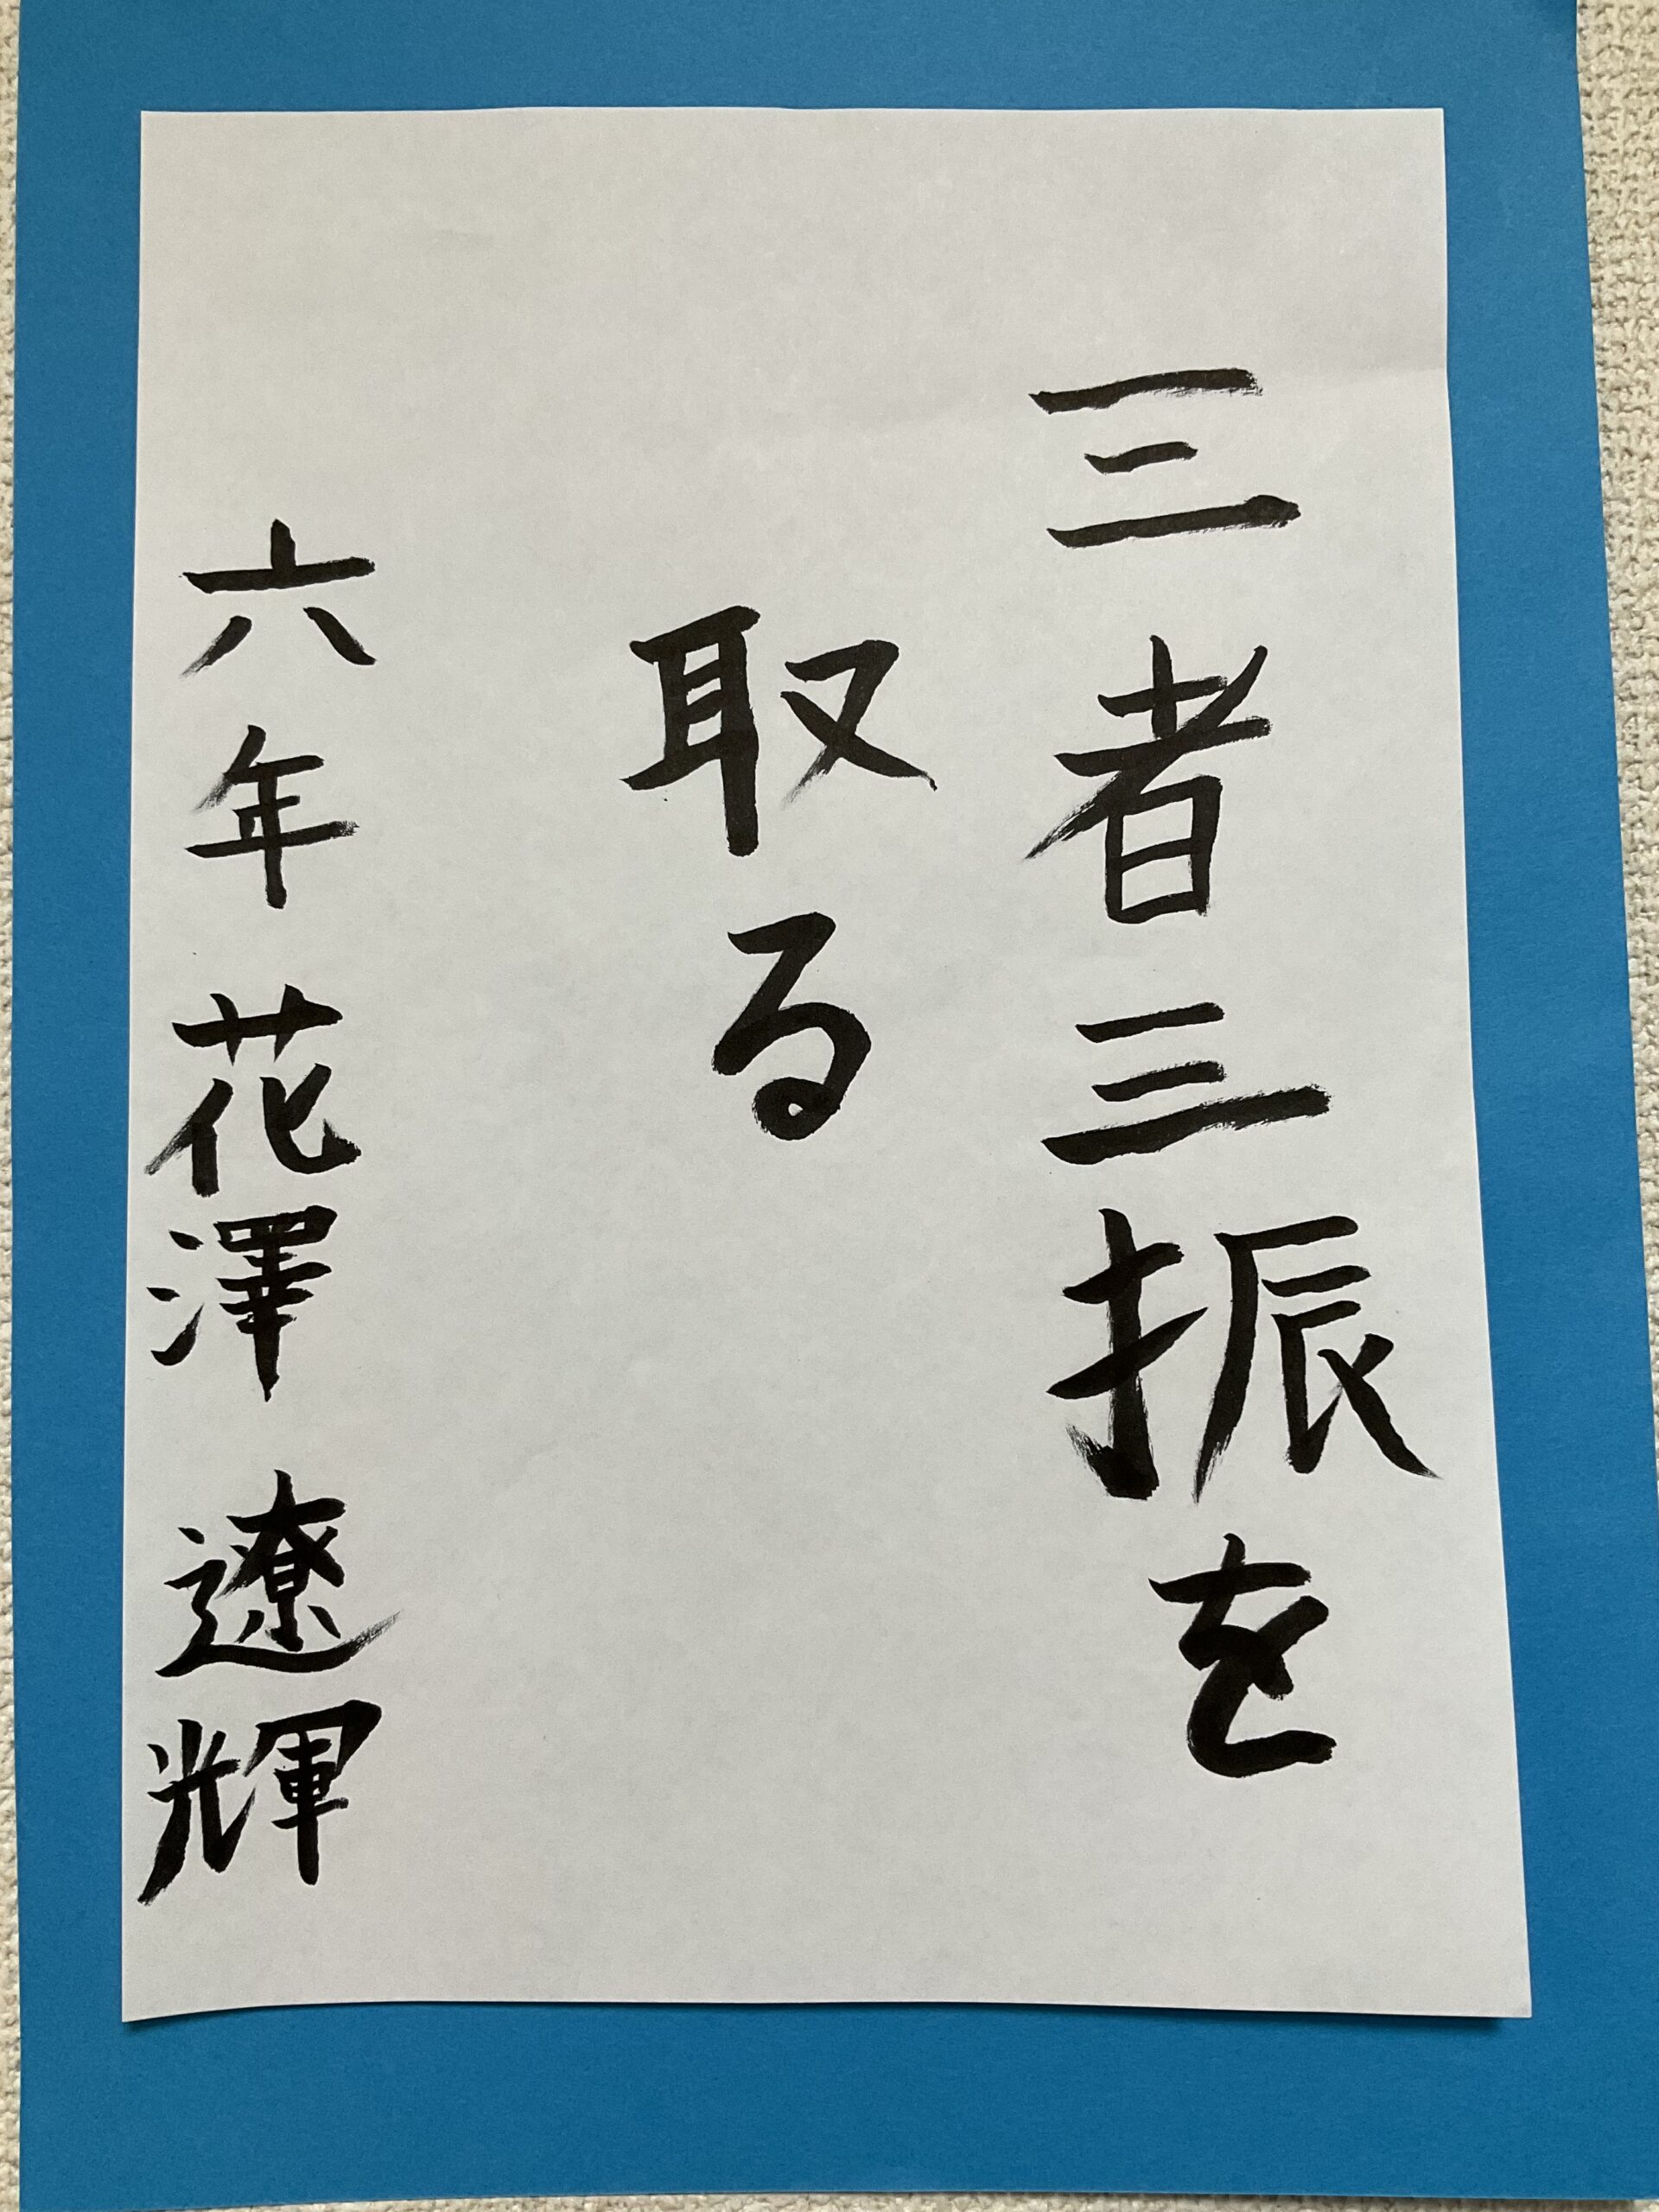 三者三振を
取る
六年 花澤 遼輝